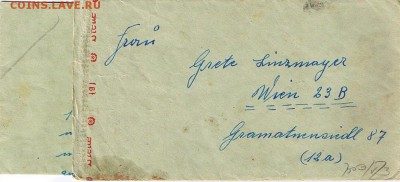 COINS.LAVE.RU
Frau
Grete Linzmayer
Wien 23 B
Gramatneusiedl 87
(12a)